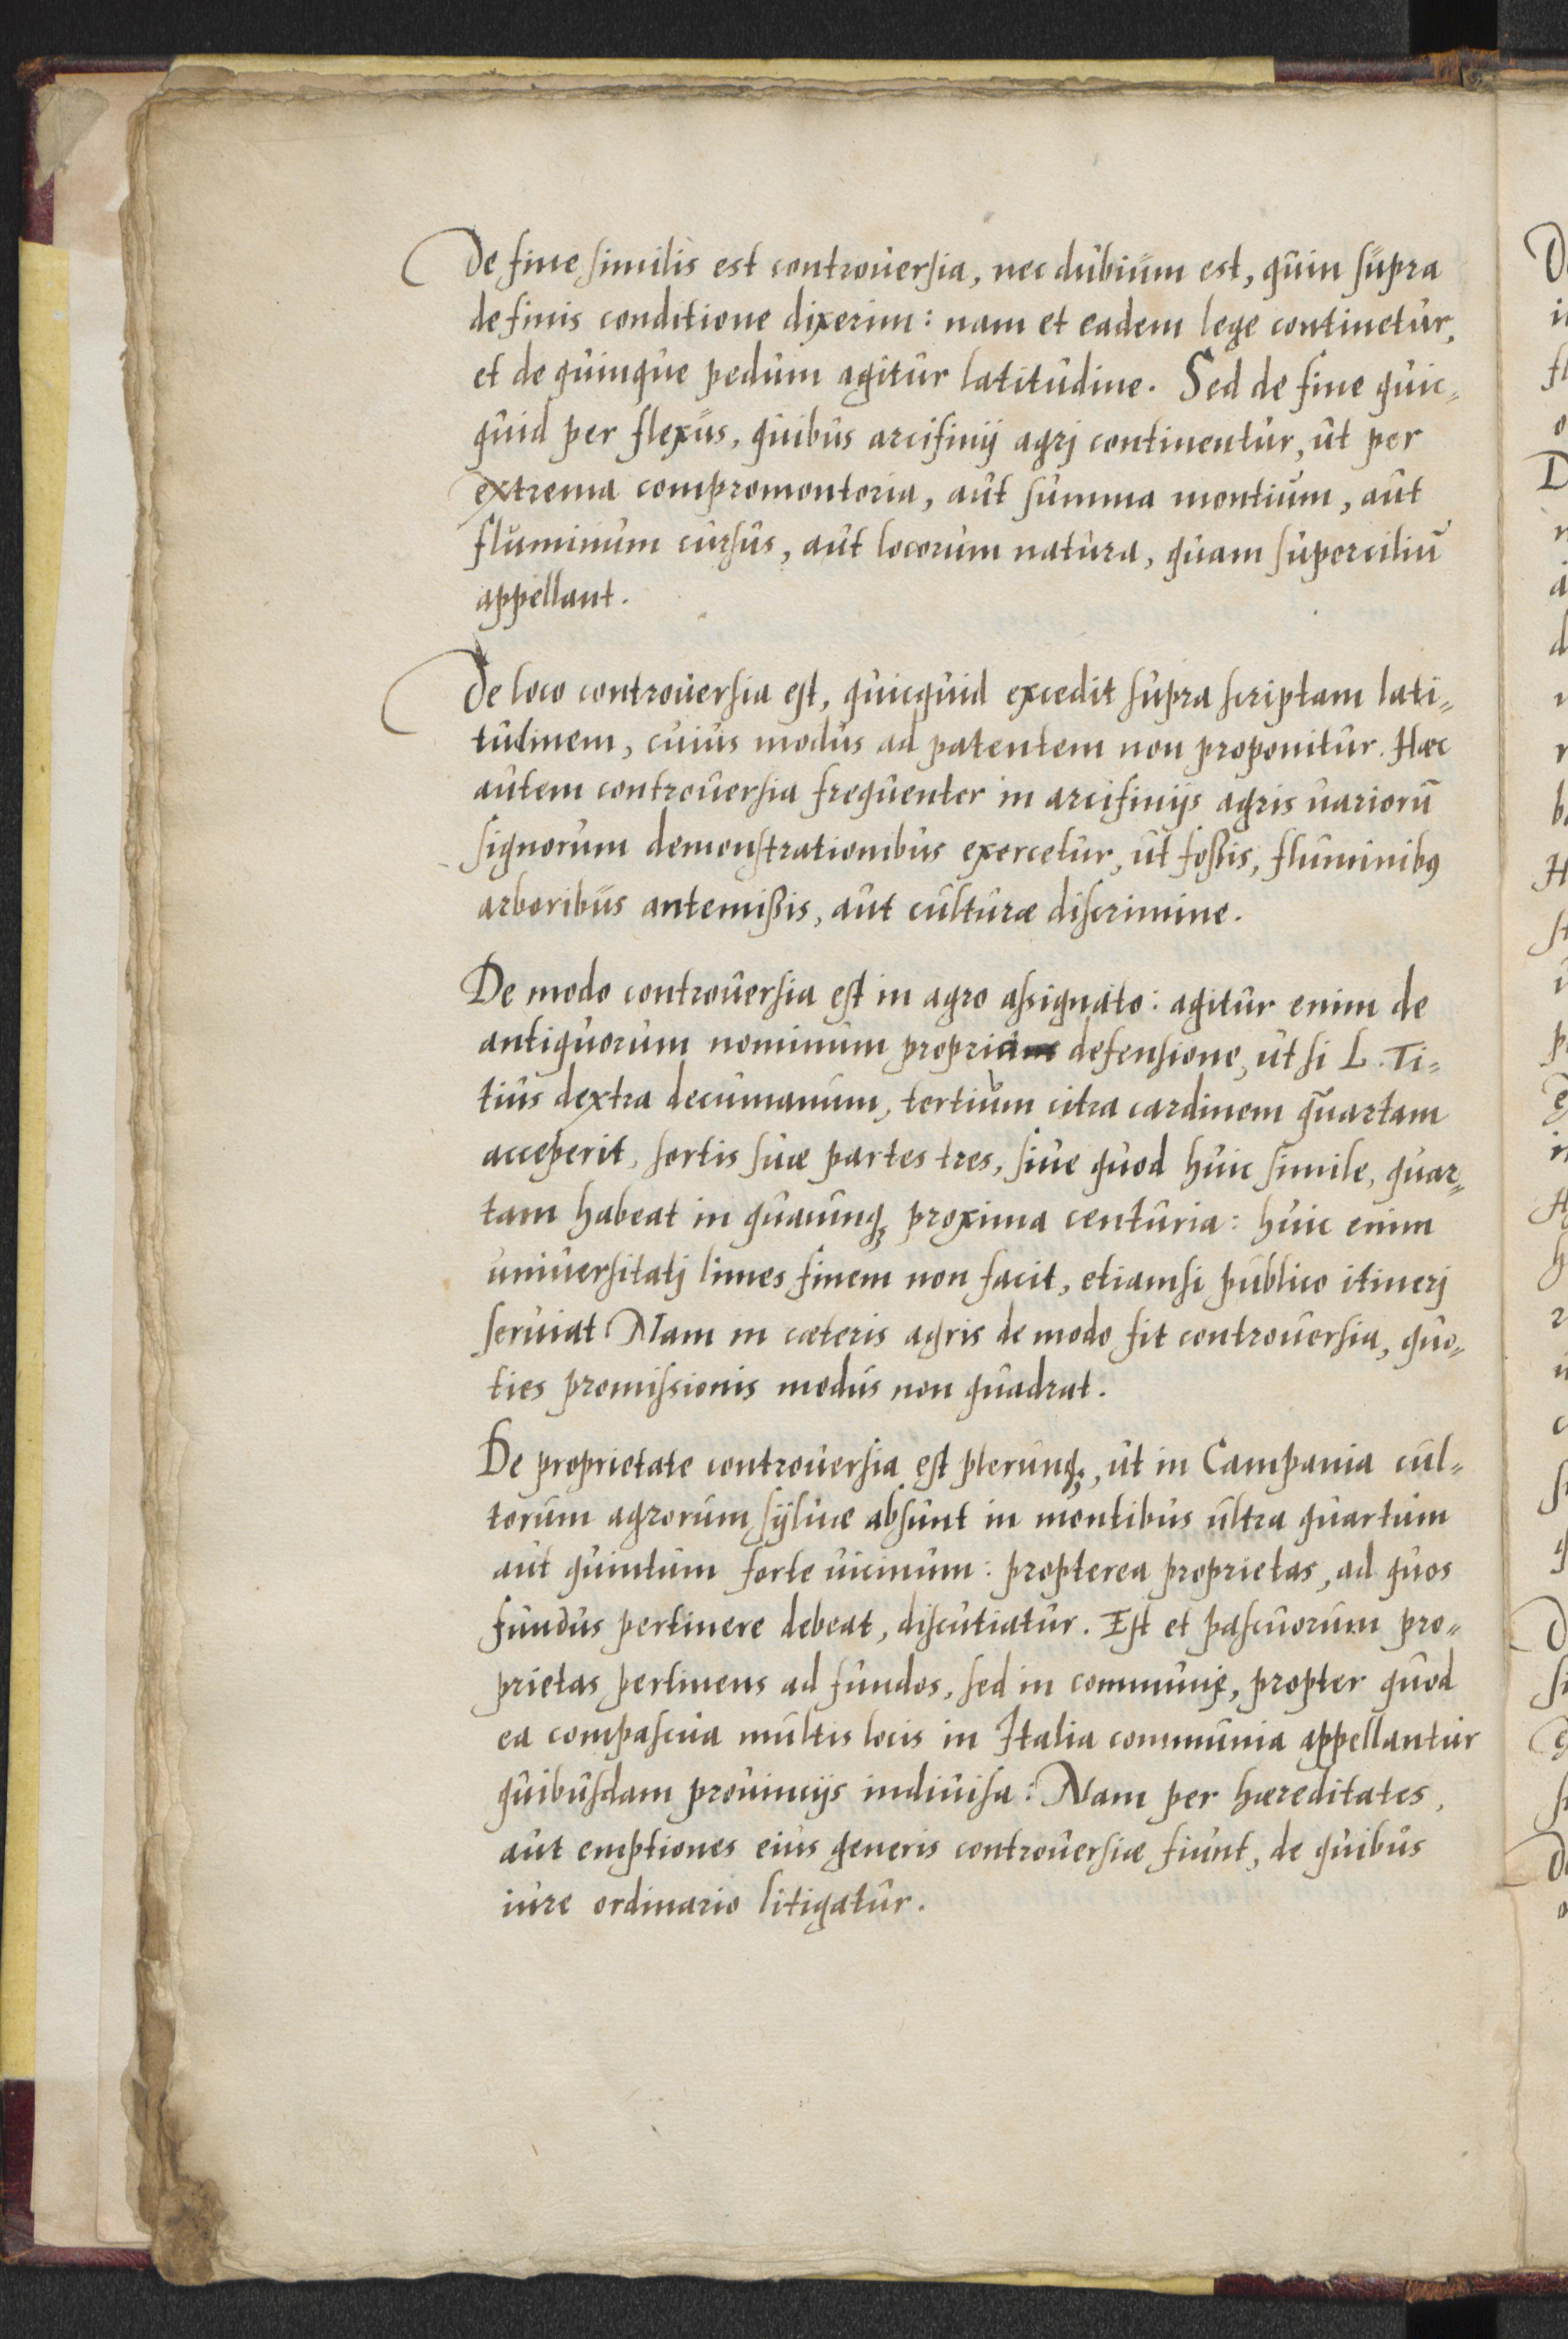 De fine similis est controuersia, nec dubium est, quin supra
de finis conditione dixerim: nam et eadem lege continetur,
et de quinque pedum agitur latitudine. Sed de fine quic-
quid per flexus, quibus arcifinij agri continentur, ut per
extrema compromontoria, aut summa montium, aut
fluminum cursus, aut locorum natura, quam superciliũ
appellant.
De loco controuersia est, quicquid excedit supra scriptam lati-
tudinem, cuius modus ad patentem non proponitur. Hæc
autem controuersia frequenter in arcifinijs agris uariorũ
signorum demonstrationibus exercetur, ut foßis, fluminibꝰ
arboribus antemißis, aut culturæ discrimine.
De modo controuersia est in agro assignato: agitur enim de
antiquorum nominum propria defensione, ut si L. Ti-
tius dextra decumanum, tertium citra cardinem quartam
acceperit, sortis suæ partes tres, siue quod huic simile, quar-
tam habeat in quauunqꝫ proxima centuria: huic enim
uniuersitati limes finem non facit, etiamsi publico itineri
seruiat Nam in cæteris agris de modo fit controuersia, quo-
ties promissionis modus non quadrat.
De proprietate controuersia est plerunqꝫ, ut in Campania cul-
torum agrorum syluæ absunt in montibus ultra quartum
aut quintum forte uicinum: propterea proprietas, ad quos
fundus pertinere debeat, discutiatur. Est et pascuorum pro-
prietas pertinens ad fundos, sed in commune, propter quod
ea compascua multis locis in Italia communia appellantur
quibusdam prouincijs indiuisa: Nam per hæreditates,
aut emptiones eius generis controuersiæ fiunt, de quibus
iure ordinario litigatur.